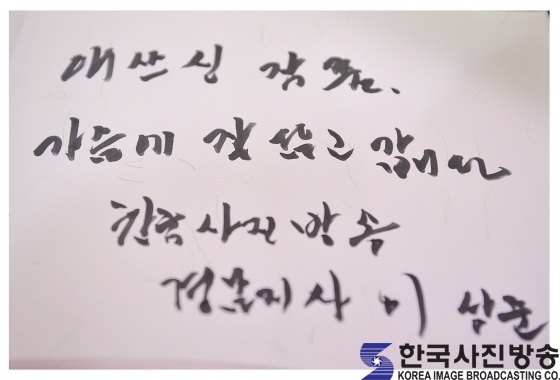 애쓰신 작품.
가슴에 잘 담고 갑니다
한국사진방송
경북지사 이
한국사진방송
KOREA IMAGE BROADCASTING CO.